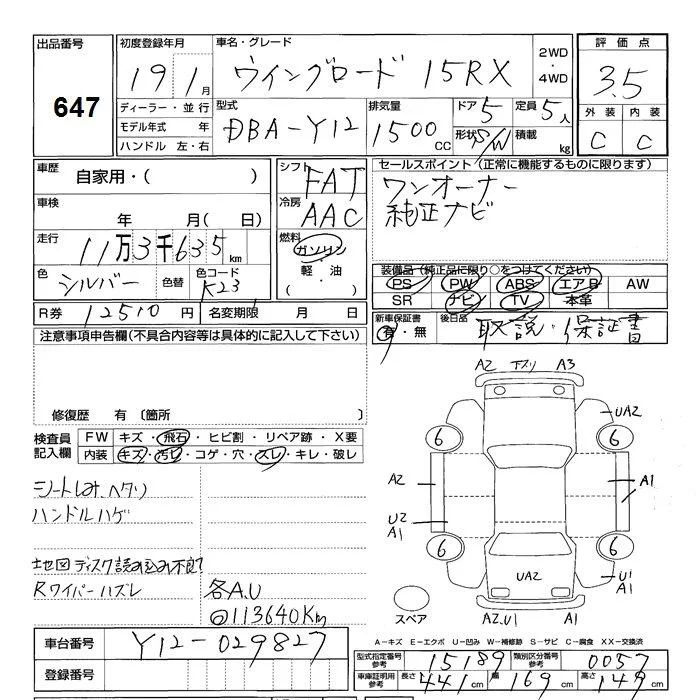 出品番号
647
初度登録年月
19年1月
ディーラー・並行
モデル年式 年
ハンドル 左・右
車名・グレード
ウイングロード 15RX
2WD・4WD
型式
DBA-Y12
排気量
1500cc
ドア 5
形状 S/W
定員 5人
積載 kg
評価点
3.5
外装 内装
C C
車歴
自家用・( )
車検
年 月( 日)
走行
11万3千635km
色
シルバー
色替
色コード
K23
R券 12510円
名変期限 月 日
シフト
FAT
冷房
AAC
燃料
ガソリン
軽・油
( )
セールスポイント(正常に機能するものに限ります)
ワンオーナー
純正ナビ
装備品(純正品に限り○をつけてください)
PS PW ABS エアB AW
SR ナビ TV 本革
新車保証書
有・無
後日品
取説・保証書
注意事項申告欄(不具合内容等は具体的に記入して下さい)
修復歴 有〔箇所 〕
検査員記入欄
FW キズ・飛石・ヒビ割・リペア跡・X要
内装 キズ・汚レ・コゲ・穴・スレ・キレ・破レ
シートしみ、ヘタリ
ハンドルハゲ
地図ディスク読み込み不良
Rワイパーハズレ
各A.U
113640Km
A2 下スリ A3
UA2
6 6
A2 A1
U2
A1
6 6
UA2
U1
A1
スペア
A2.U1 A1
A-キズ E-エクボ U-凹み W-補修跡 S-サビ C-腐食 XX-交換済
車台番号
Y12-029827
登録番号
型式指定番号 参考
15189
類別区分番号 参考
0057
車庫証明用 参考
長さ 441cm
幅 169cm
高さ 149cm